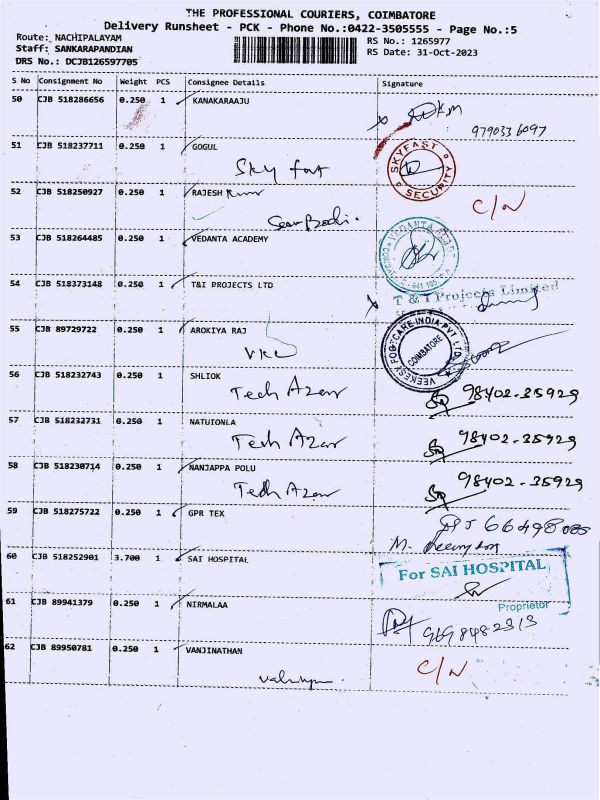 THE PROFESSIONAL COURIERS, COIMBATORE
Delivery Runsheet - PCK - Phone No.:0422-3505555 - Page No.:5
Route: NACHIPALAYAM
RS No.: 1265977
Staff: SANKARAPANDIAN
RS Date: 31-Oct-2023
DRS No.: DCJB126597705
S No Consignment No Weight PCS Consignee Details Signature
50 CJB 518286656 0.250 1 KANAKARAAJU
9790336097
51 CJB 518237711 0.250 1 GOGUL
Sky fast
SKYFAST SECURITY
52 CJB 518250927 0.250 1 RAJESH Kumar
C/N
53 CJB 518264485 0.250 1 VEDANTA ACADEMY
VEDANTA
54 CJB 518373148 0.250 1 T&I PROJECTS LTD
T & I Projects Limited
55 CJB 89729722 0.250 1 AROKIYA RAJ
VKC
VEEKESY FOOTCARE INDIA PVT LTD
COIMBATORE
56 CJB 518232743 0.250 1 SHLIOK
Tech Azar
98402-35929
57 CJB 518232731 0.250 1 NATUIONLA
Tech Azar
98402-35929
58 CJB 518230714 0.250 1 NANJAPPA POLU
Tech Azar
98402-35929
59 CJB 518275722 0.250 1 GPR TEX
M.
60 CJB 518252901 3.700 1 SAI HOSPITAL
For SAI HOSPITAL
Proprietor
61 CJB 89941379 0.250 1 NIRMALAA
62 CJB 89950781 0.250 1 VANJINATHAN
C/N